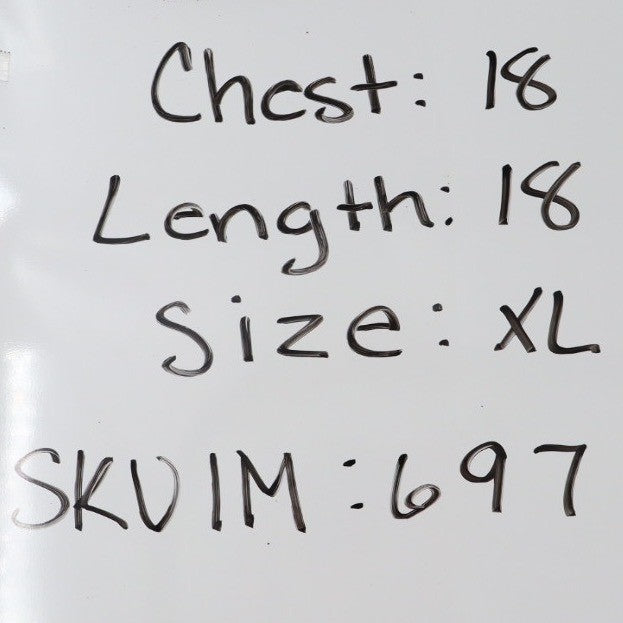 Chest: 18
Length: 18
Size: XL
SKU IM: 697